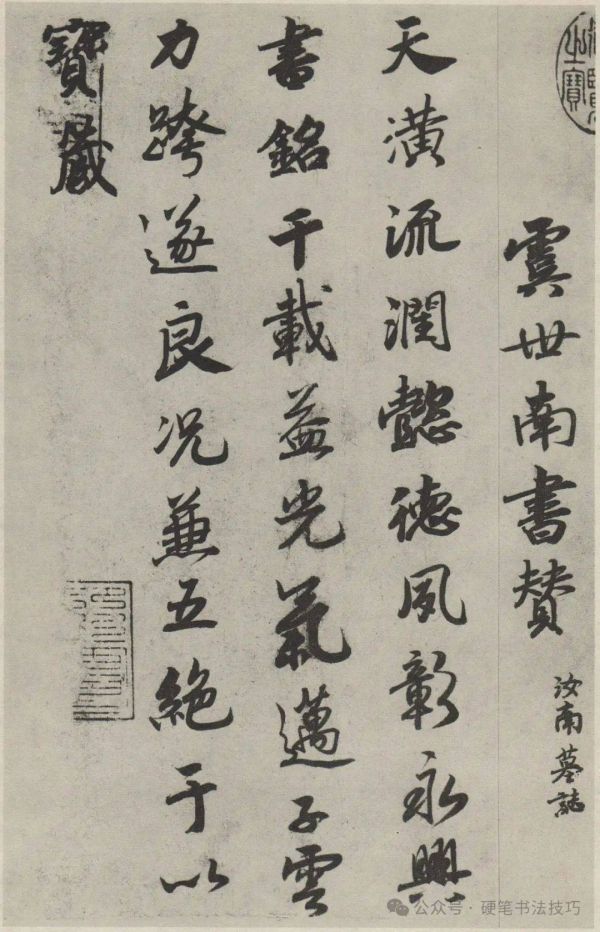 虞世南書贊
汝南墓誌
天潢流潤懿德夙彰永興
書銘千載益光氣邁子雲
力跨遂良況兼五絕于以
寶藏
之寶
公众号·硬笔书法技巧